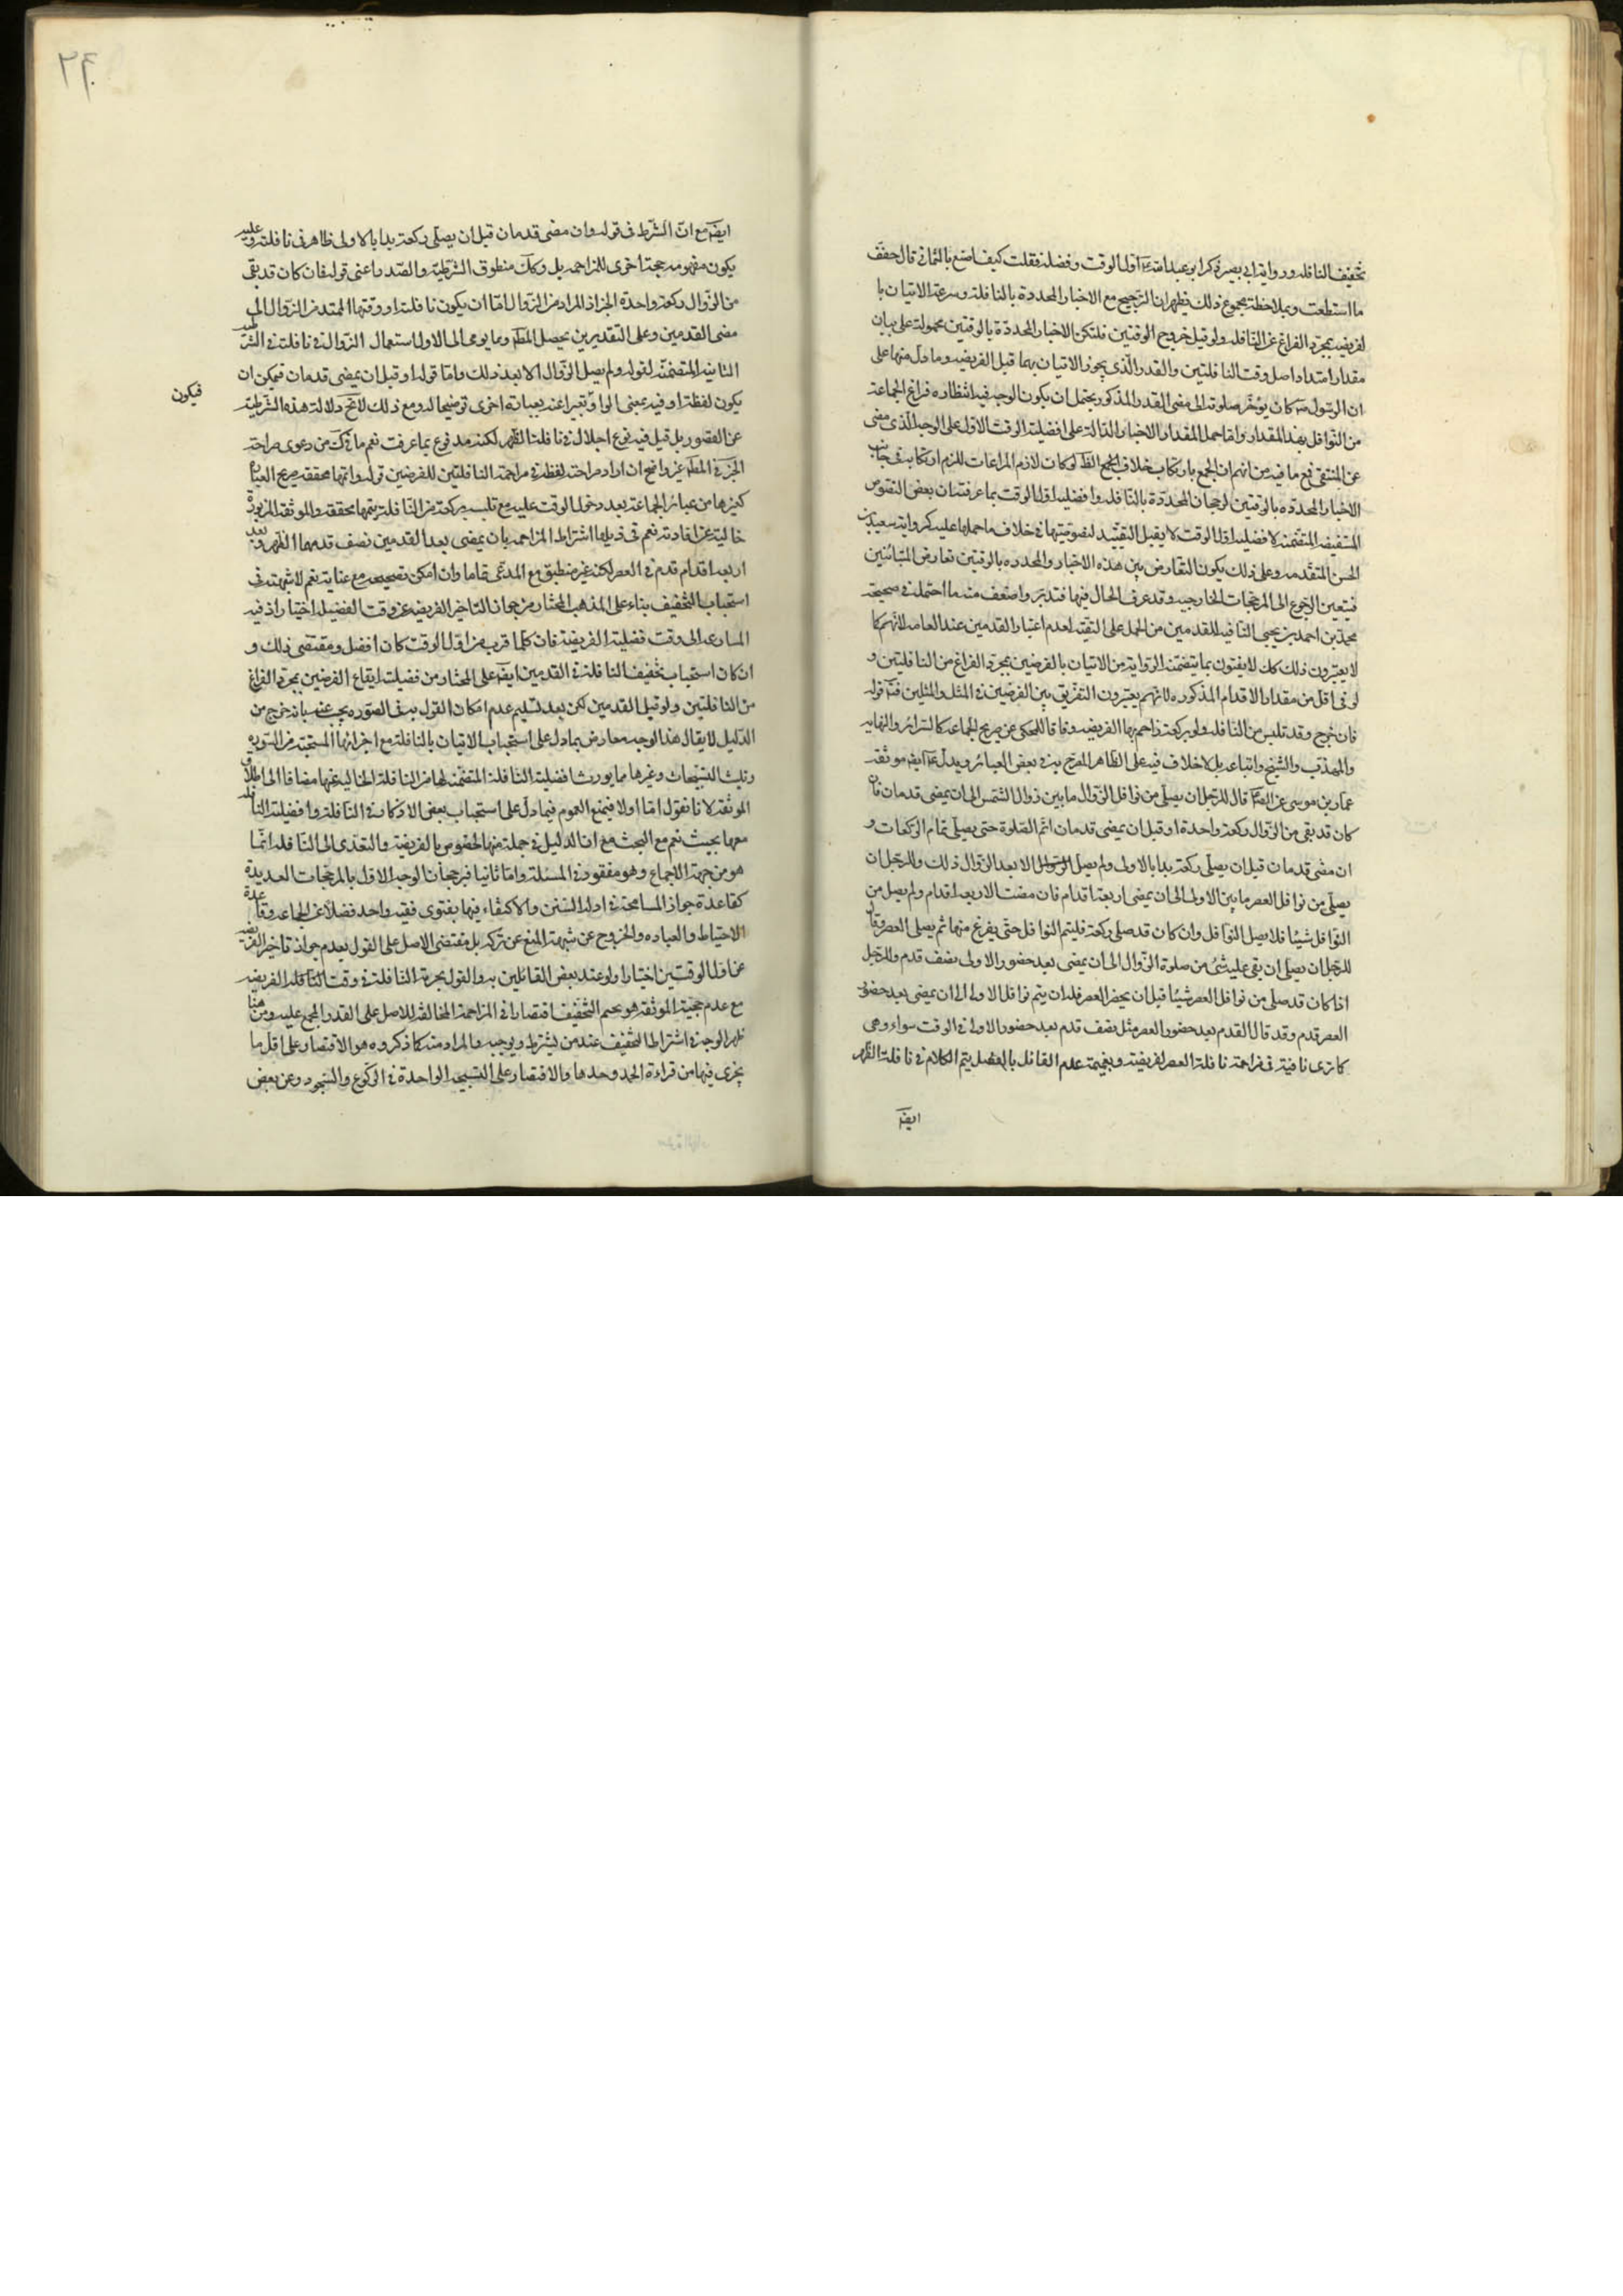 تخفيف النافله ورواية ابي بصير ذكر ابو عبد الله ع اول الوقت وفضله فقلت كيف اصنع بالثماني قال خفف
ما استطعت وبملاحظة مجموع ذلك يظهر ان الترجيح مع الاخبار المحددة بالنافلة وسرعة الاتيان با
لفريضه بمجرد الفراغ عن النافله ولو قبل خروج الوقتين فلتكن الاخبار المحددة بالوقتين محمولة على بيان
مقدار امتداد اصل وقت النافلتين والقدر الذي يجوز الاتيان بهما قبل الفريضه وما دل منها على
ان الرسول ص كان يؤخر صلوته الى مضى القدر المذكور يحتمل ان يكون الوجه فيه انتظاره فراغ الجماعة
من النوافل بهذا المقدار واما حمل المقدار الاخبار الدالة على افضلية الوقت الاول على الوجه الذي مضى
عن المنتقى فمع ما فيه من انهم ان الجمع بارتكاب خلاف الظ لو كان لازم المراعات للزم ارتكابه في جانب
الاخبار المحدده بالوقتين لرجحان المحددة بالنافله وافضليه اول الوقت بما عرفته ان بعض النصوص
المستفيضه المتضمنه لافضليه اول الوقت لا يقبل التقييد لنصوصيتها في خلاف ما حملها عليه كرواية سعيد بن
الحسن المتقدمه وعلى ذلك يكون التعارض بين هذه الاخبار والمحدده بالوقتين تعارض المتباينين
فيتعين الرجوع الى المرجحات الخارجيه وقد عرفت الحال فيها فتدبر واضعف منه ما احتمله في صحيحة
محمد بن احمد بن يحيى النافيه للقدمين من الحمل على التقيه لعدم اعتبار القدمين عند العامه لانهم كما
لا يعتبرون ذلك كك لا يفتون بما يتضمنه الرواية من الاتيان بالفرضين بمجرد الفراغ من النافلتين و
لو في اقل من مقدار الاقدام المذكوره لانهم يعتبرون التفريق بين الفرضين في المثل والمثلين قوله
فان خرج وقد تلبس من النافله ولو بركعة زاحم بها الفريضه وفاقا للمحكى عن صريح الجماعه كالسرائر والنهايه
والمهذب والشيخ واتباعه بل لا خلاف فيه على الظاهر المصرح به في بعض العبائر ويدل عليه ايضا موثقة
عمار بن موسى عن الصادق ع قال للرجل ان يصلى من نوافل الزوال ما بين زوال الشمس الى ان يمضى قدمان فان
كان قد بقى من الزوال ركعة واحدة او قبل ان يمضى قدمان اتم الصلوة حتى يصلى تمام الركعات و
ان مضى قدمان قبل ان يصلى ركعة بدا بالاولى ولم يصل الزوال الا بعد الزوال ذلك وللرجل ان
يصلى من نوافل العصر ما بين الاولى الى ان يمضى اربعة اقدام فان مضت الاربعة اقدام ولم يصل من
النوافل شيئا فلا يصل النوافل وان كان قد صلى ركعة فليتم النوافل حتى يفرغ منها ثم يصلى العصر وقال
للرجل ان يصلى ان بقى عليه شئ من صلوة الزوال الى ان يمضى بعد حضور الاولى نصف قدم وللرجل
اذا كان قد صلى من نوافل العصر شيئا قبل ان يحضر العصر فله ان يتم نوافل الاولى الى ان يمضى بعد حضور
العصر قدم وقد قال القدم بعد حضور العصر مثل نصف قدم بعد حضور الاولى في الوقت سواء وهي
كما ترى نافية في مزاحمة نافلة العصر لفريضته وبضميمة عدم القائل بالفصل يتم الكلام في نافلة الظهر
ايضا
ايضا مع ان الشرط في قوله وان مضى قدمان قبل ان يصلى ركعة بدا بالاولى ظاهر في نافلته وعليه
يكون مفهومه حجة اخرى للمزاحمه بل وكك منطوق الشرطية والصدر اعنى قوله فان كان قد بقى
من الزوال ركعة واحدة الخ اذ المراد من الزوال اما ان يكون نافلته او وقتها الممتد من الزوال الى
مضى القدمين وعلى التقديرين يحصل المط وما يومى الى الاول استعمال الزوال في نافلته في الشرطية
الثانيه المتضمنه لقوله ولم يصل الزوال الا بعد ذلك واما قوله او قبل ان يمضى قدمان فيمكن ان
فيكون
يكون لفظة او فيه بمعنى الواو تعبيرا عنه بعبارة اخرى توضيحا له ومع ذلك لا تخ دلالة هذه الشرطية
عن القصور بل قيل فيه نوع اجلال في نافلة الظهر لكنه مدفوع بما عرفت نعم ما ذكر من دعوى صراحة
الخبر في المط غير واضح ان اراد صراحة لفظة في مزاحمة النافلتين للفرضين قوله واتمها مخففة صريح العبائر
كغيرها من عبائر الجماعة بعد دخول الوقت عليه مع تلبسه بركعة من النافلة يتمها مخففة والموثقة المزبورة
خالية عن افادته نعم في ذيلها اشتراط المزاحمه بان يمضى بعد القدمين نصف قدمها الظهر وبعد
اربعة اقدام قدم في العصر لكنه غير منطبق مع المدعى تماما وان امكن تصحيحه مع عناية نعم لا شبهة في
استحباب التخفيف بناء على المذهب المختار من جواز التاخير الفريضه عن وقت الفضيلة اختيارا اذ فيه
المسارعه الى وقت فضيلة الفريضة فان كلما قرب من اول الوقت كان افضل ومقتضى ذلك و
ان كان استحباب تخفيف النافلة في القدمين ايضا على المختار من فضيلت ايقاع الفرضين بمجرد الفراغ
من النافلتين ولو قبل القدمين لكن بعد تسليم عدم امكان القول به في الصوره يجب عنه بانه خرج من
الدليل لا يقال هذا الوجه معارض بما دل على استحباب الاتيان بالنافلة مع اجزائها المستحبة من السوره
وتثليث التسبيحات وغيرها مما يورث افضلية النافلة المتضمنة لها من النافلة الخالية عنها مضافا الى اطلاق
الموثقة لانا نقول اما اولا فيمنع العموم فيما دل على استحباب بعض الاذكار في النافلة وافضلية النافلة
معها بحيث نعم مع البحث مع ان الدليل في جملة منها الخصوص بالفريضة والتعدى الى النافله انما
هو من جهة الاجماع وهو مفقود في المسئلة واما ثانيا فبرجحان الوجه الاول بالمرجحات العديدة
كقاعدة جواز المسامحة في ادلة السنن والاكتفاء فيها بفتوى فقيه واحد فضلا عن الجماعه وقاعدة
الاحتياط والعباده والخروج عن شبهة المنع عن تركه بل مقتضى الاصل على القول بعدم جواز تاخير الفريضة
عن اول الوقتين اختيارا ولو عند بعض القائلين به والقول بحرمة النافلة في وقت النافله الفريضه
مع عدم حجية الموثقه هو تحتم التخفيف اقتصارا في المزاحمة المخالفة للاصل على القدر المجمع عليه ومن هنا
ظهر الوجه في اشتراط التخفيف عند من يشترط ويوجبه والمراد منه كما ذكروه هو الاقتصار على اقل ما
يجزى فيها من قراءة الحمد وحدها والاقتصار على التسبيحة الواحدة في الركوع والسجود وعن بعض